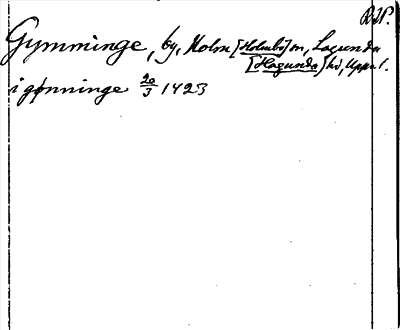 R.SP.
Gymminge, by, Holm [Holmbo] sn, Lagunda
[Hagunda] hd, Uppsal.
i gønninge 20/3 1423